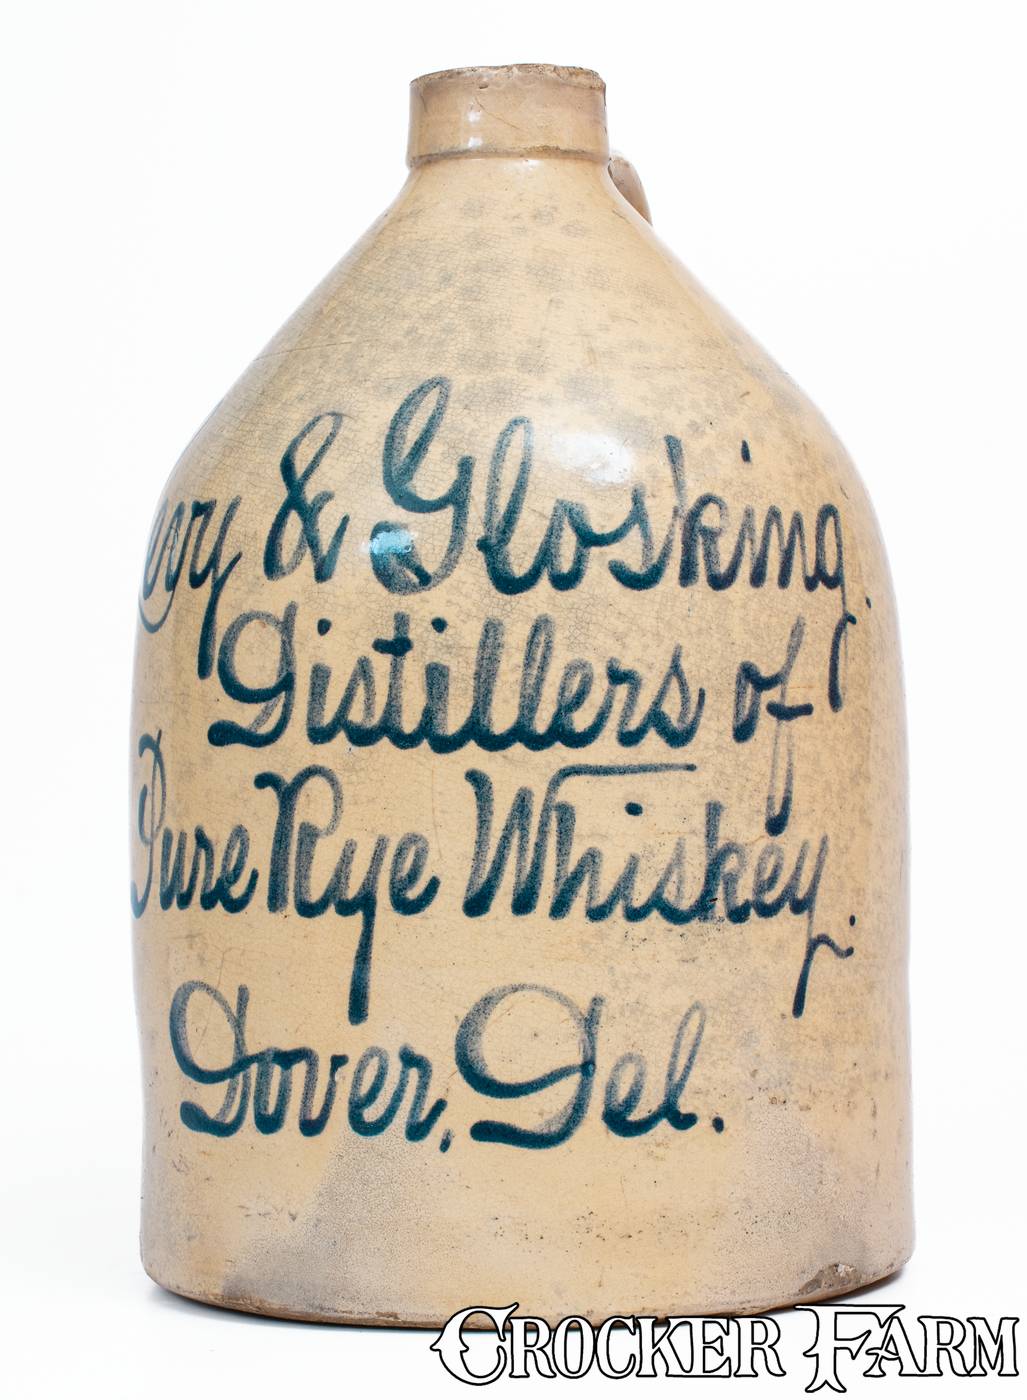 & Glosking.
Distillers of
Pure Rye Whiskey.
Dover, Del.
CROCKER FARM